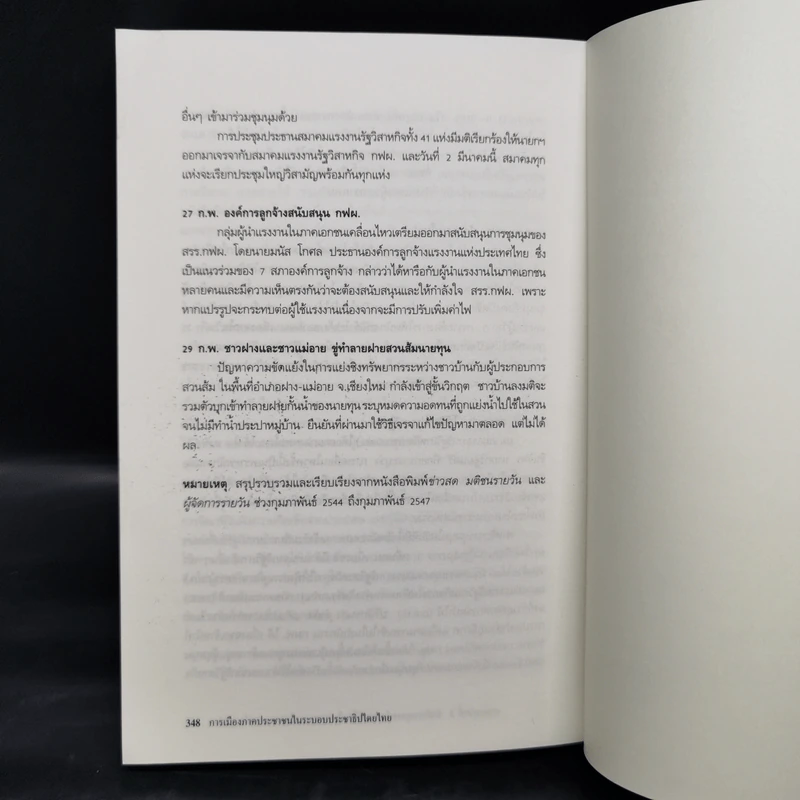 อื่นๆ เข้ามาร่วมชุมนุมด้วย
การประชุมประธานสมาคมแรงงานรัฐวิสาหกิจทั้ง 41 แห่งมีมติเรียกร้องให้นายกฯ
ออกมาเจรจากับสมาคมแรงงานรัฐวิสาหกิจ กฟผ. และวันที่ 2 มีนาคมนี้ สมาคมทุก
แห่งจะเรียกประชุมใหญ่วิสามัญพร้อมกันทุกแห่ง
27 ก.พ. องค์การลูกจ้างสนับสนุน กฟผ.
กลุ่มผู้นำแรงงานในภาคเอกชนเคลื่อนไหวเตรียมออกมาสนับสนุนการชุมนุมของ
สรร.กฟผ. โดยนายมนัส โกศล ประธานองค์การลูกจ้างแรงงานแห่งประเทศไทย ซึ่ง
เป็นแนวร่วมของ 7 สภาองค์การลูกจ้าง กล่าวว่าได้หารือกับผู้นำแรงงานในภาคเอกชน
หลายคนและมีความเห็นตรงกันว่าจะต้องสนับสนุนและให้กำลังใจ สรร.กฟผ. เพราะ
หากแปรรูปจะกระทบต่อผู้ใช้แรงงานเนื่องจากจะมีการปรับเพิ่มค่าไฟ
29 ก.พ. ชาวฝางและชาวแม่อาย ขู่ทำลายฝายสวนส้มนายทุน
ปัญหาความขัดแย้งในการแย่งชิงทรัพยากรระหว่างชาวบ้านกับผู้ประกอบการ
สวนส้ม ในพื้นที่อำเภอฝาง-แม่อาย จ.เชียงใหม่ กำลังเข้าสู่ขั้นวิกฤต ชาวบ้านลงมติจะ
รวมตัวบุกเข้าทำลายฝายกั้นน้ำของนายทุน ระบุหมดความอดทนที่ถูกแย่งน้ำไปใช้ในสวน
จนไม่มีทำน้ำประปาหมู่บ้าน ยืนยันที่ผ่านมาใช้วิธีเจรจาแก้ไขปัญหามาตลอด แต่ไม่ได้
ผล
หมายเหตุ สรุปรวบรวมและเรียบเรียงจากหนังสือพิมพ์ข่าวสด มติชนรายวัน และ
ผู้จัดการรายวัน ช่วงกุมภาพันธ์ 2544 ถึงกุมภาพันธ์ 2547
348 การเมืองภาคประชาชนในระบอบประชาธิปไตยไทย